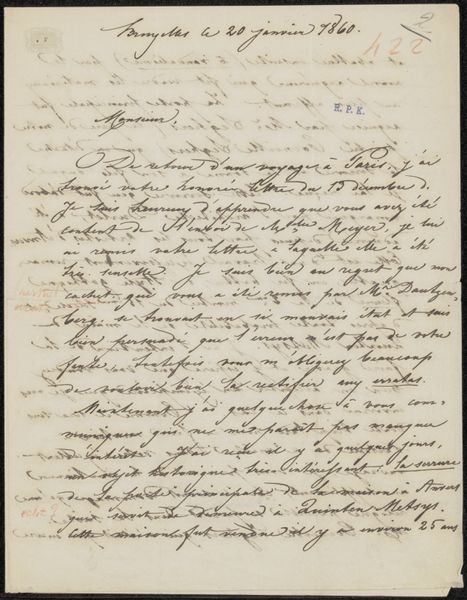 Bruxelles le 20 janvier 1860.
2
422
R. P. K.
Monsieur,
De retour d'un voyage à Paris, j'ai
trouvé votre honorée lettre du 15 décembre d.
Je suis heureux d'apprendre que vous avez été
content de l'envoi de Meyer, je lui
ai remis votre lettre, à laquelle elle a été
très sensible. Je suis bien au regret que mon
cachet que vous a été remis par Mr. Dautzen-
berg se trouvait en si mauvais état et suis
bien persuadé que l'erreur n'est pas de votre
faute, toutefois vous m'obligerez beaucoup
de vouloir bien la rectifier aux erratas.
Maintenant j'ai quelque chose à vous com-
muniquer qui ne me parait pas manquer
d'intérêt. J'ai reçu il y a quelques jours,
un objet historique très intéressant: la serrure
de la porte principale de la maison à Anvers
qui servit de demeure à Quinten Metsys.
Cette maison fut vendue il y a environ 25 ans